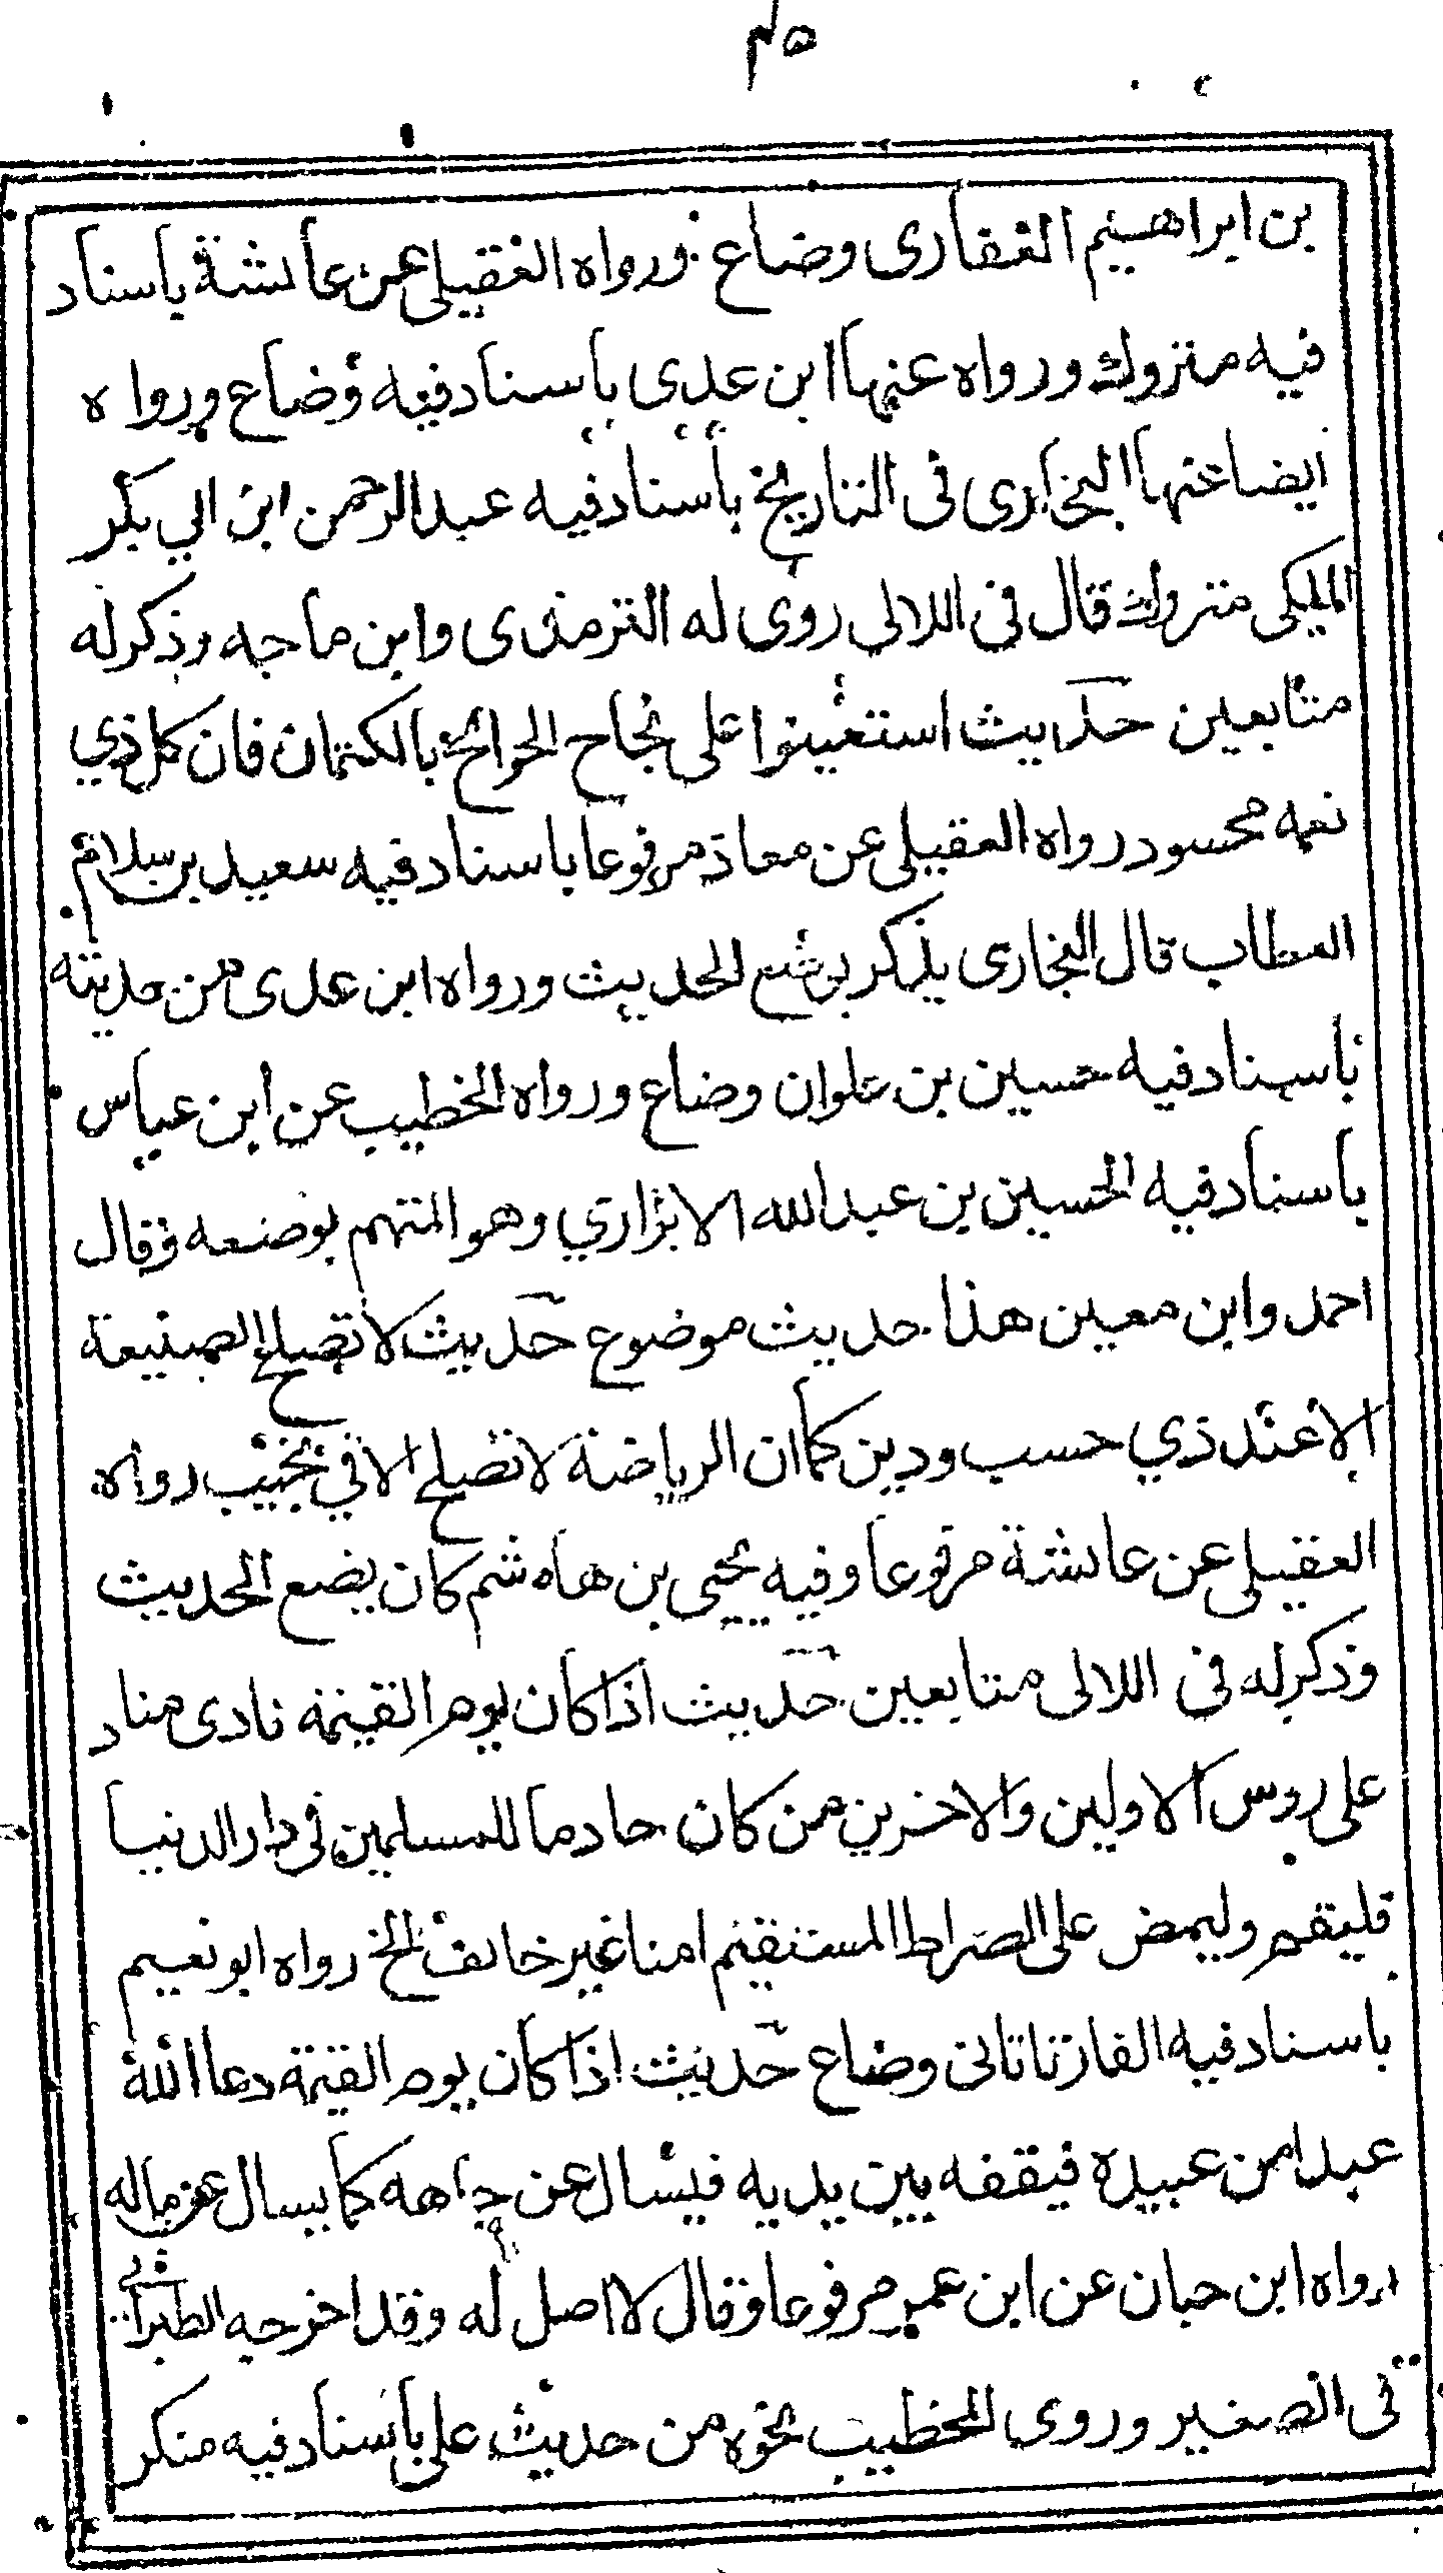 ٣٥
بن ابراهيم الغفارى وضاع ورواه العقيلى عن عائشة باسناد
فيه متروك ورواه عنها ابن عدى باسناد فيه وضاع ورواه
ايضا عنها البخارى فى التاريخ باسناد فيه عبد الرحمن ابن ابي بكر
المليكى متروك قال فى اللالي روى له الترمذى وابن ماجه وذكر له
متابعين حديث استعينوا على نجاح الحوائج بالكتمان فان كل ذي
نعمه محسود رواه العقيلى عن معاذ مرفوعا باسناد فيه سعيد بن سلام
العطاب قال البخارى يذكر بوضع الحديث ورواه ابن عدى من حديثه
باسناد فيه حسين بن علوان وضاع ورواه الخطيب عن ابن عباس
باسناد فيه الحسين بن عبد الله الابزاري وهو المتهم بوضعه وقال
احمد وابن معين هذا حديث موضوع حديث لا تصلح الصنيعة
الا عند ذي حسب ودين كما ان الرياضة لا تصلح الا في نجيب رواه
العقيلى عن عائشة مرفوعا وفيه يحيى بن هاشم كان يضع الحديث
وذكر له فى اللالى متابعين حديث اذا كان يوم القيمة نادى مناد
على روس الاولين والاخرين من كان خادما للمسلمين فى دار الدنيا
فليقم وليمض على الصراط المستقيم امنا غير خائف الخ رواه ابو نعيم
باسناد فيه الفارتاتانى وضاع حديث اذا كان يوم القيمة دعا الله
عبدا من عبيده فيقفه بين يديه فيسال عن جاهه كما يسال عن ماله
رواه ابن حبان عن ابن عمر مرفوعا وقال لا اصل له وقد اخرجه الطبراني
فى الصغير وروى الخطيب نحوه من حديث على باسناد فيه منكر